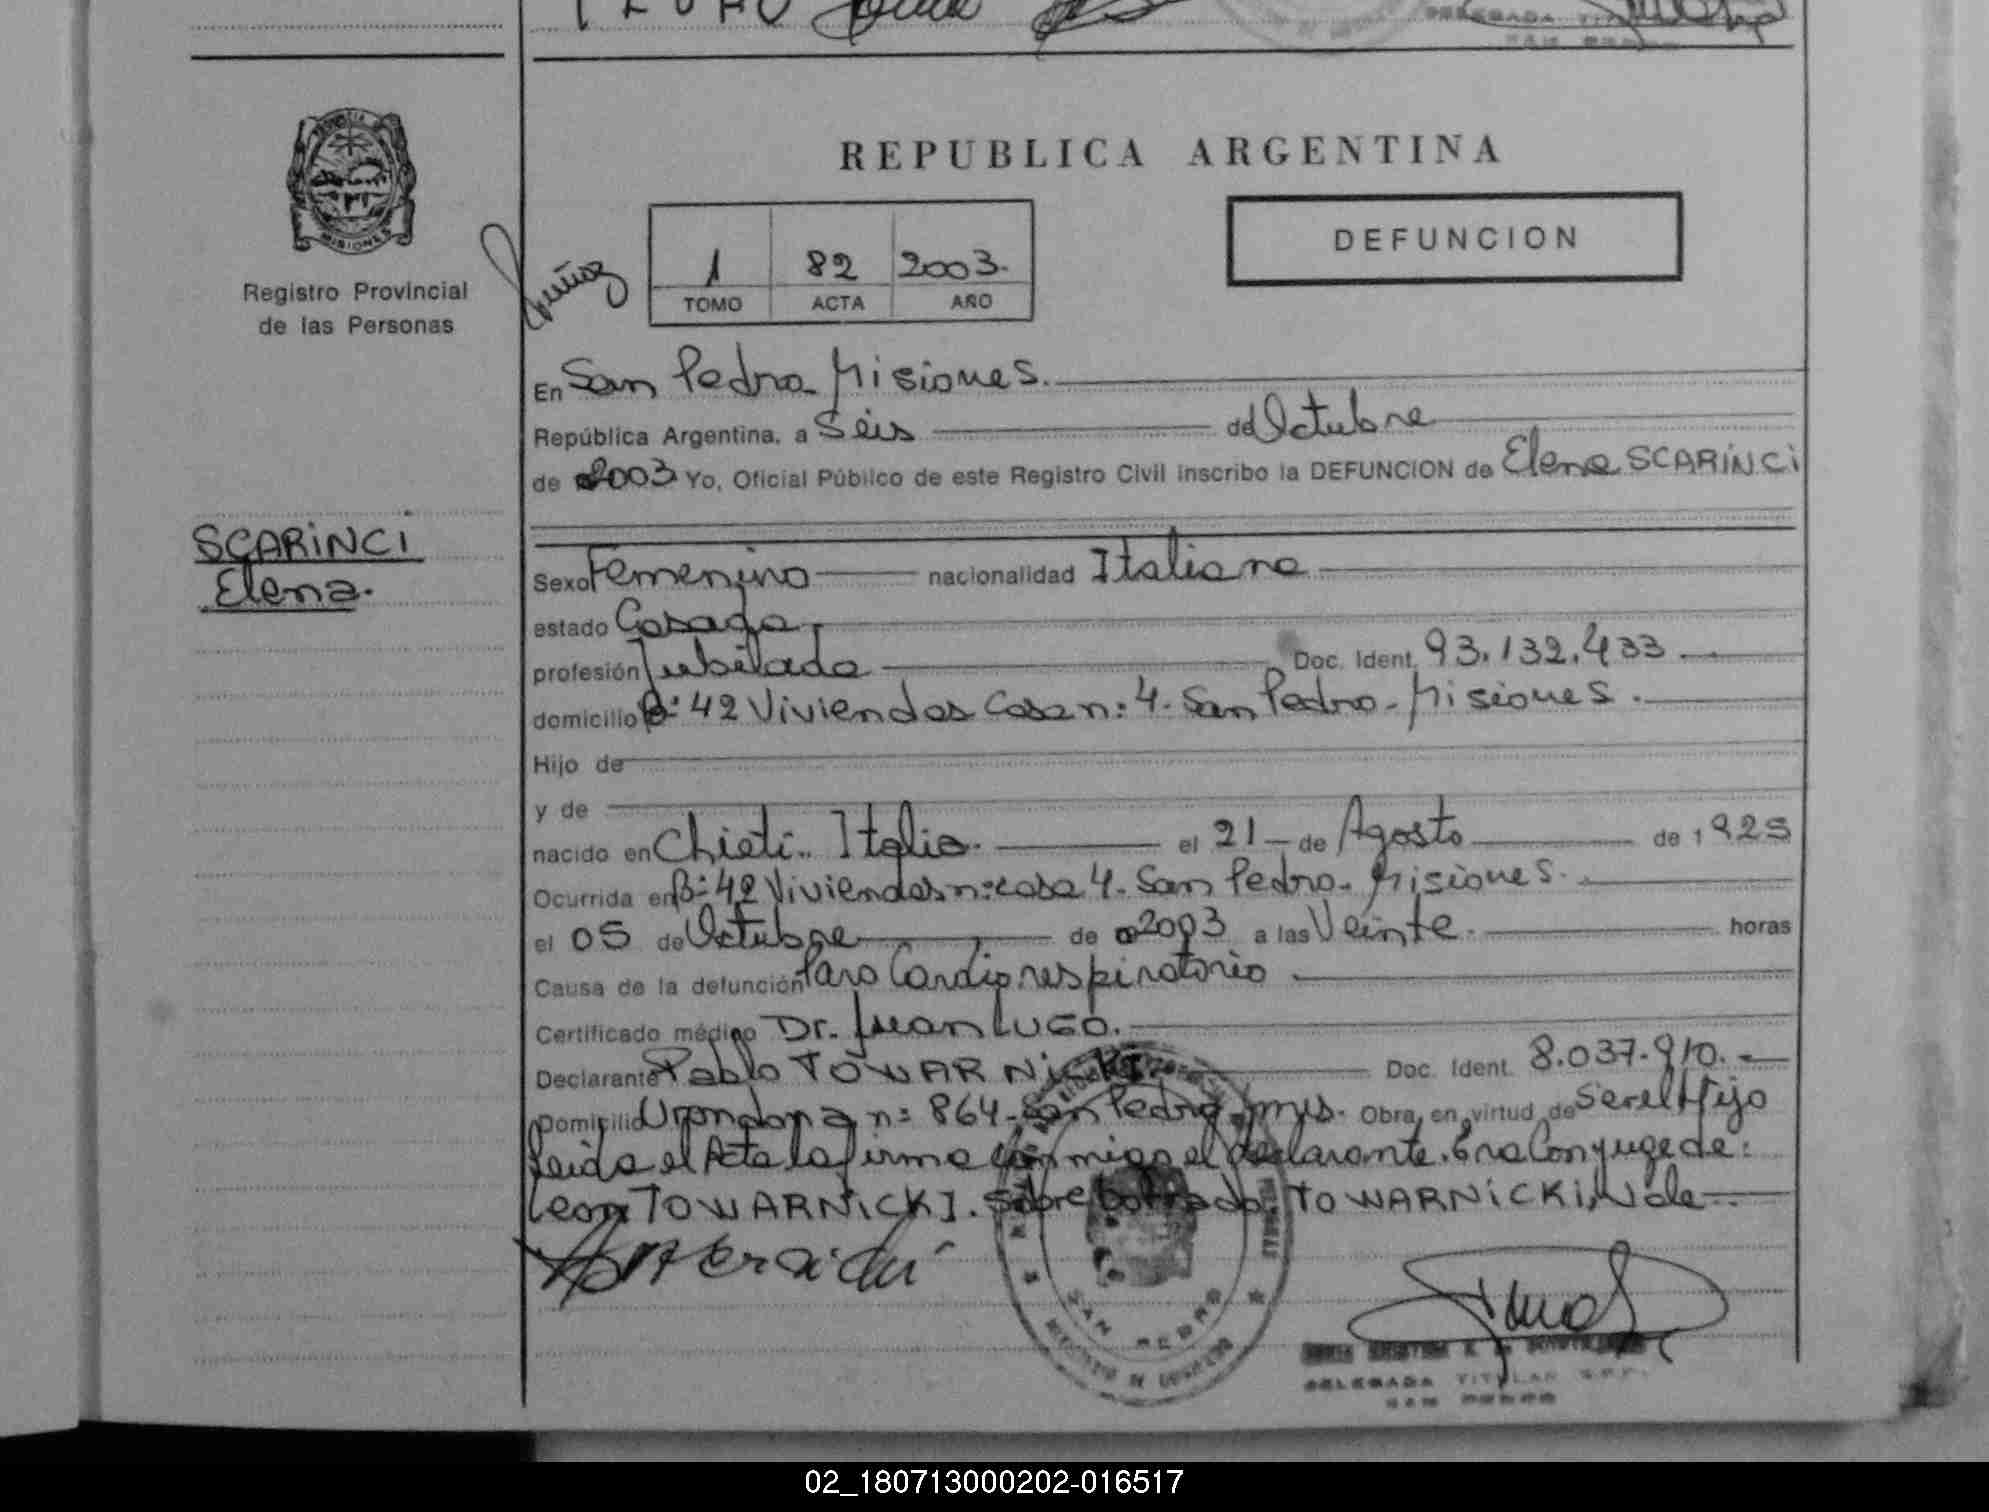 DELEGADA
REPUBLICA ARGENTINA
PROVINCIA DE
MISIONES
Registro Provincial
de las Personas
Muñoz
1 82 2003.
TOMO ACTA AÑO
DEFUNCION
En San Pedro Misiones.
República Argentina, a Seis de Octubre
de 2003 Yo, Oficial Público de este Registro Civil inscribo la DEFUNCION de Elena SCARINCI
SCARINCI
Elena.
Sexo Femenino nacionalidad Italiana
estado Casada
profesión Jubilada Doc. Ident. 93.132.433
domicilio Bº 42 Viviendas Casa nº 4. San Pedro - Misiones.
Hijo de
y de
nacido en Chieti.. Italia. el 21 de Agosto de 1925
Ocurrida en Bº 42 Viviendas nº casa 4. San Pedro - Misiones.
el 05 de Octubre de 2003 a las Veinte. horas
Causa de la defunción Paro Cardiorespiratorio
Certificado médico Dr. Juan LUGO.
Declarante Pablo TOWARNICKI Doc. Ident. 8.037.910.
Domicilio nº 864 - San Pedro - Mnes. Obra en virtud de Ser el Hijo
Leida el Acta la firma conmigo el declarante. Era Conyuge de:
Leon TOWARNICKI. Sobre borrado: TOWARNICKI, Vale
SAN PEDRO
DELEGADA TITULAR
SAN PEDRO
02_180713000202-016517